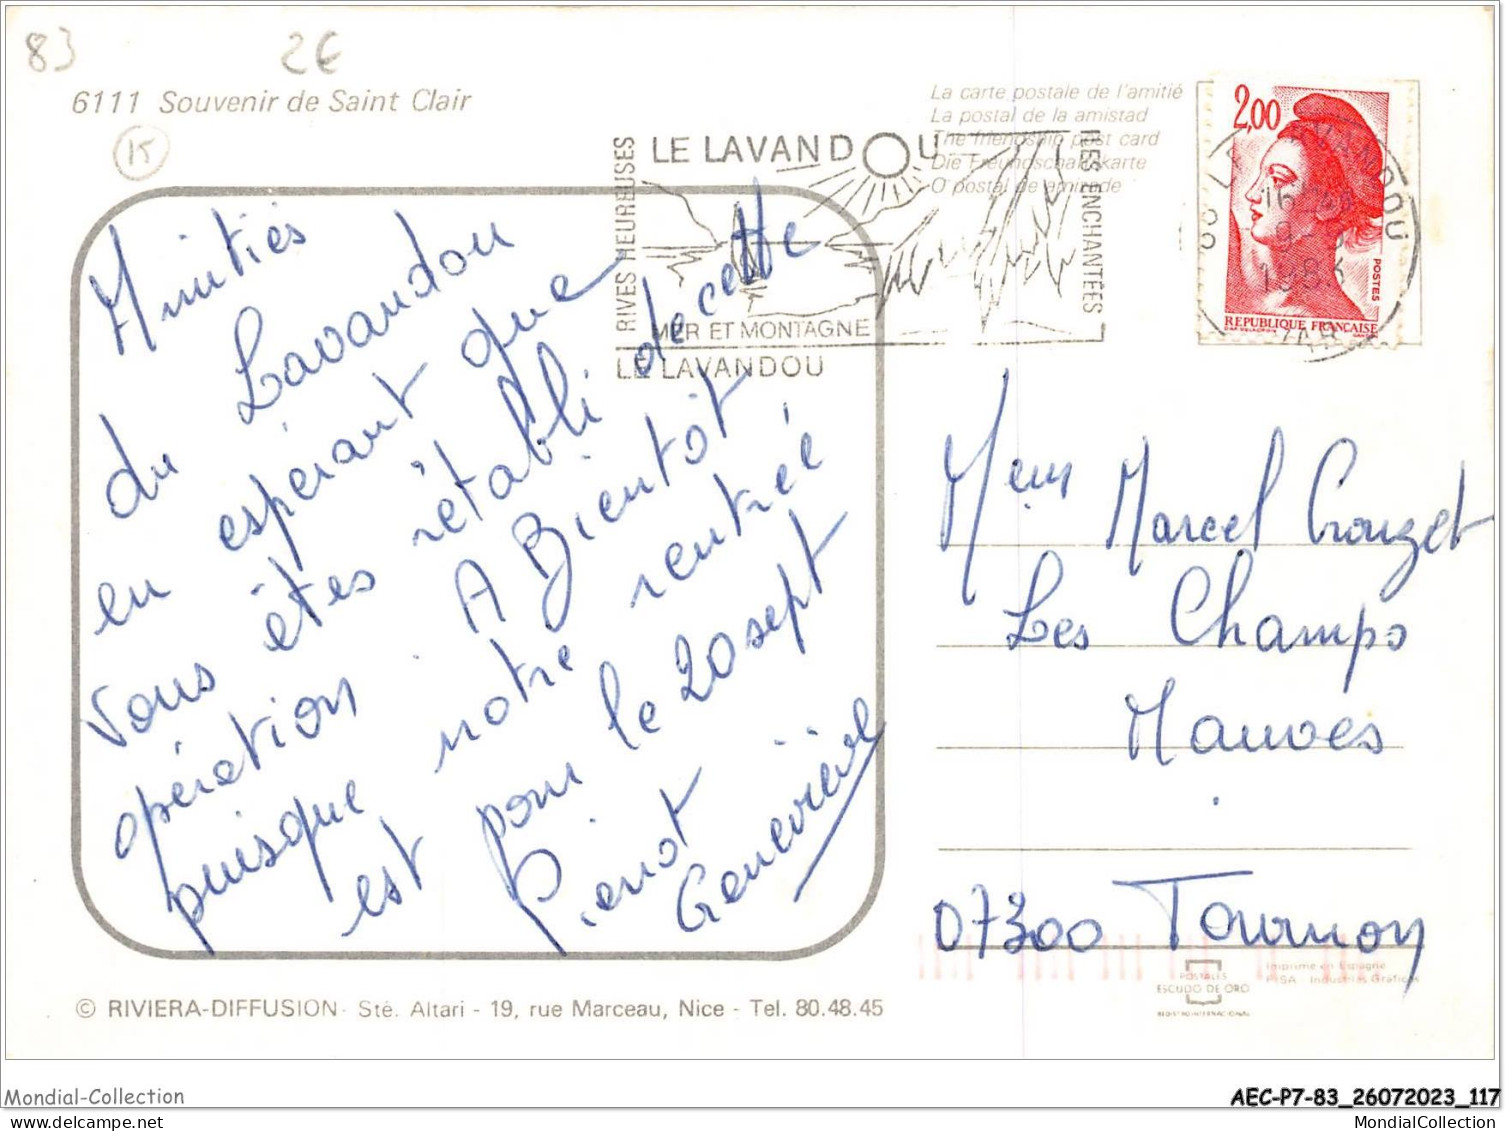 83 2€
6111 Souvenir de Saint Clair
15
La carte postale de l'amitié
La postal de la amistad
The friendship post card
Die Freundschaftskarte
O postal de amizade
RIVES HEUREUSES
LE LAVANDOU
ILES ENCHANTÉES
MER ET MONTAGNE
LE LAVANDOU
2,00
POSTES
REPUBLIQUE FRANÇAISE
83 LE LAVANDOU
16 H
9
1983
VAR
Amitiés
du Lavandou
en espérant que
vous êtes rétabli de cette
opération A Bientôt
puisque notre rentrée
est pour le 20 sept
Pierrot
Geneviève
Mem Marcel Crouzet
Les Champs
Mauves
07300 Tournon
POSTALES
ESCUDO DE ORO
REGISTRO INTERNACIONAL
Imprime en Espagne
FISA Industrias Gráficas
© RIVIERA-DIFFUSION - Sté. Altari - 19, rue Marceau, Nice - Tel. 80.48.45
Mondial-Collection
AEC-P7-83_26072023_117
MondialCollection